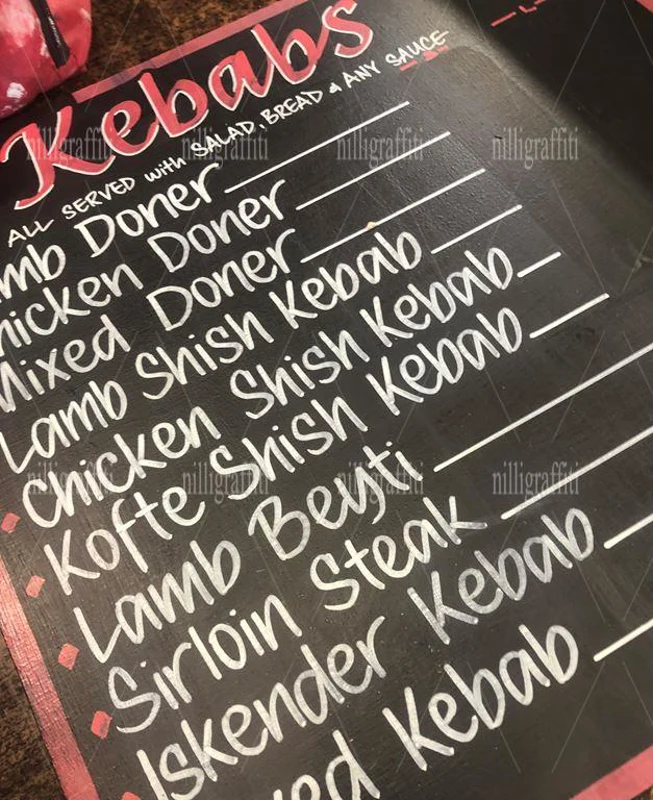 Kebabs
ALL SERVED with SALAD, BREAD & ANY SAUCE
mb Doner
hicken Doner
Mixed Doner
Lamb Shish Kebab
Chicken Shish Kebab
Kofte Shish Kebab
Lamb Beyti
Sirloin Steak
Iskender Kebab
ed Kebab
nilligraffiti nilligraffiti nilligraffiti nilligraffiti
nilligraffiti nilligraffiti nilligraffiti nilligraffiti